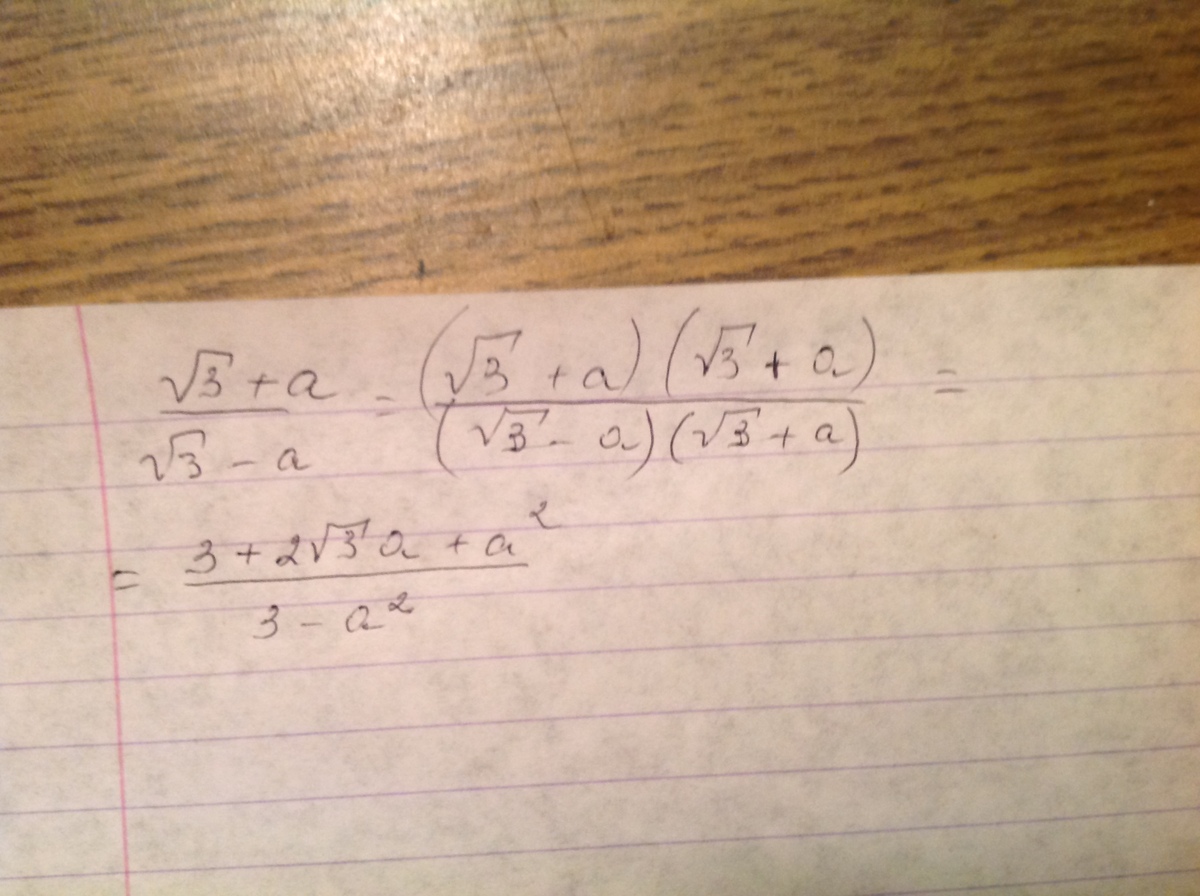 (√3 + a)/(√3 - a) = ((√3 + a)(√3 + a))/((√3 - a)(√3 + a)) =
= (3 + 2√3 a + a²)/(3 - a²)